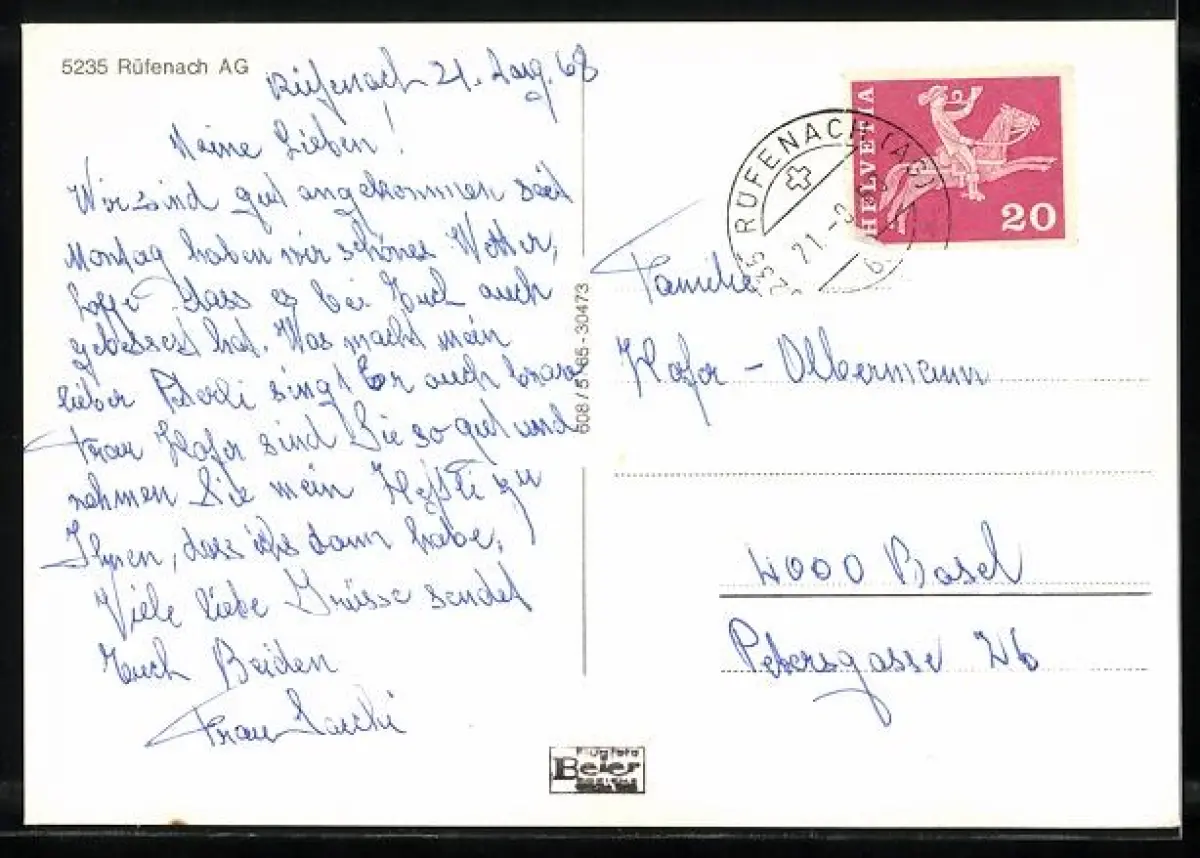 5235 Rüfenach AG
Rüfenach 21. Aug. 68
Meine Lieben!
Wir sind gut angekommen seit
Montag haben wir schönes Wetter,
hoffe dass es bei Euch auch
gebessert hat. Was macht mein
lieber singt Er auch brav
Frau Hofer sind Sie so gut und
nehmen Sie mein Heftli zu
Ihnen, dass ichs dann habe,
Viele liebe Grüsse sendet
Euch Beiden
Frau
608/5 65-30473
HELVETIA
20
RÜFENACH (AG)
5235
21.-
Familie
Hofer - Olbermann
4000 Basel
Petersgasse 26
Flugfoto
Beier